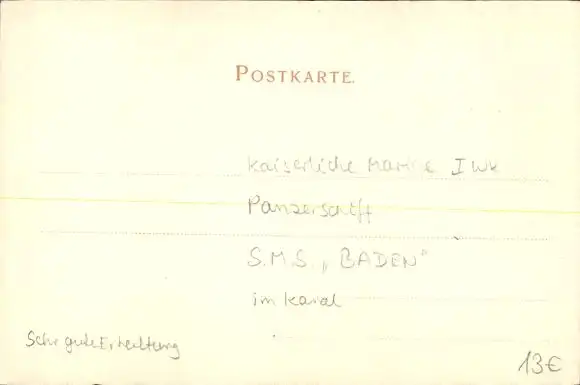 POSTKARTE.
Kaiserliche Marine I WK
Panzerschiff
S.M.S. „BADEN"
im Kanal
Sehr gute Erhaltung
13€